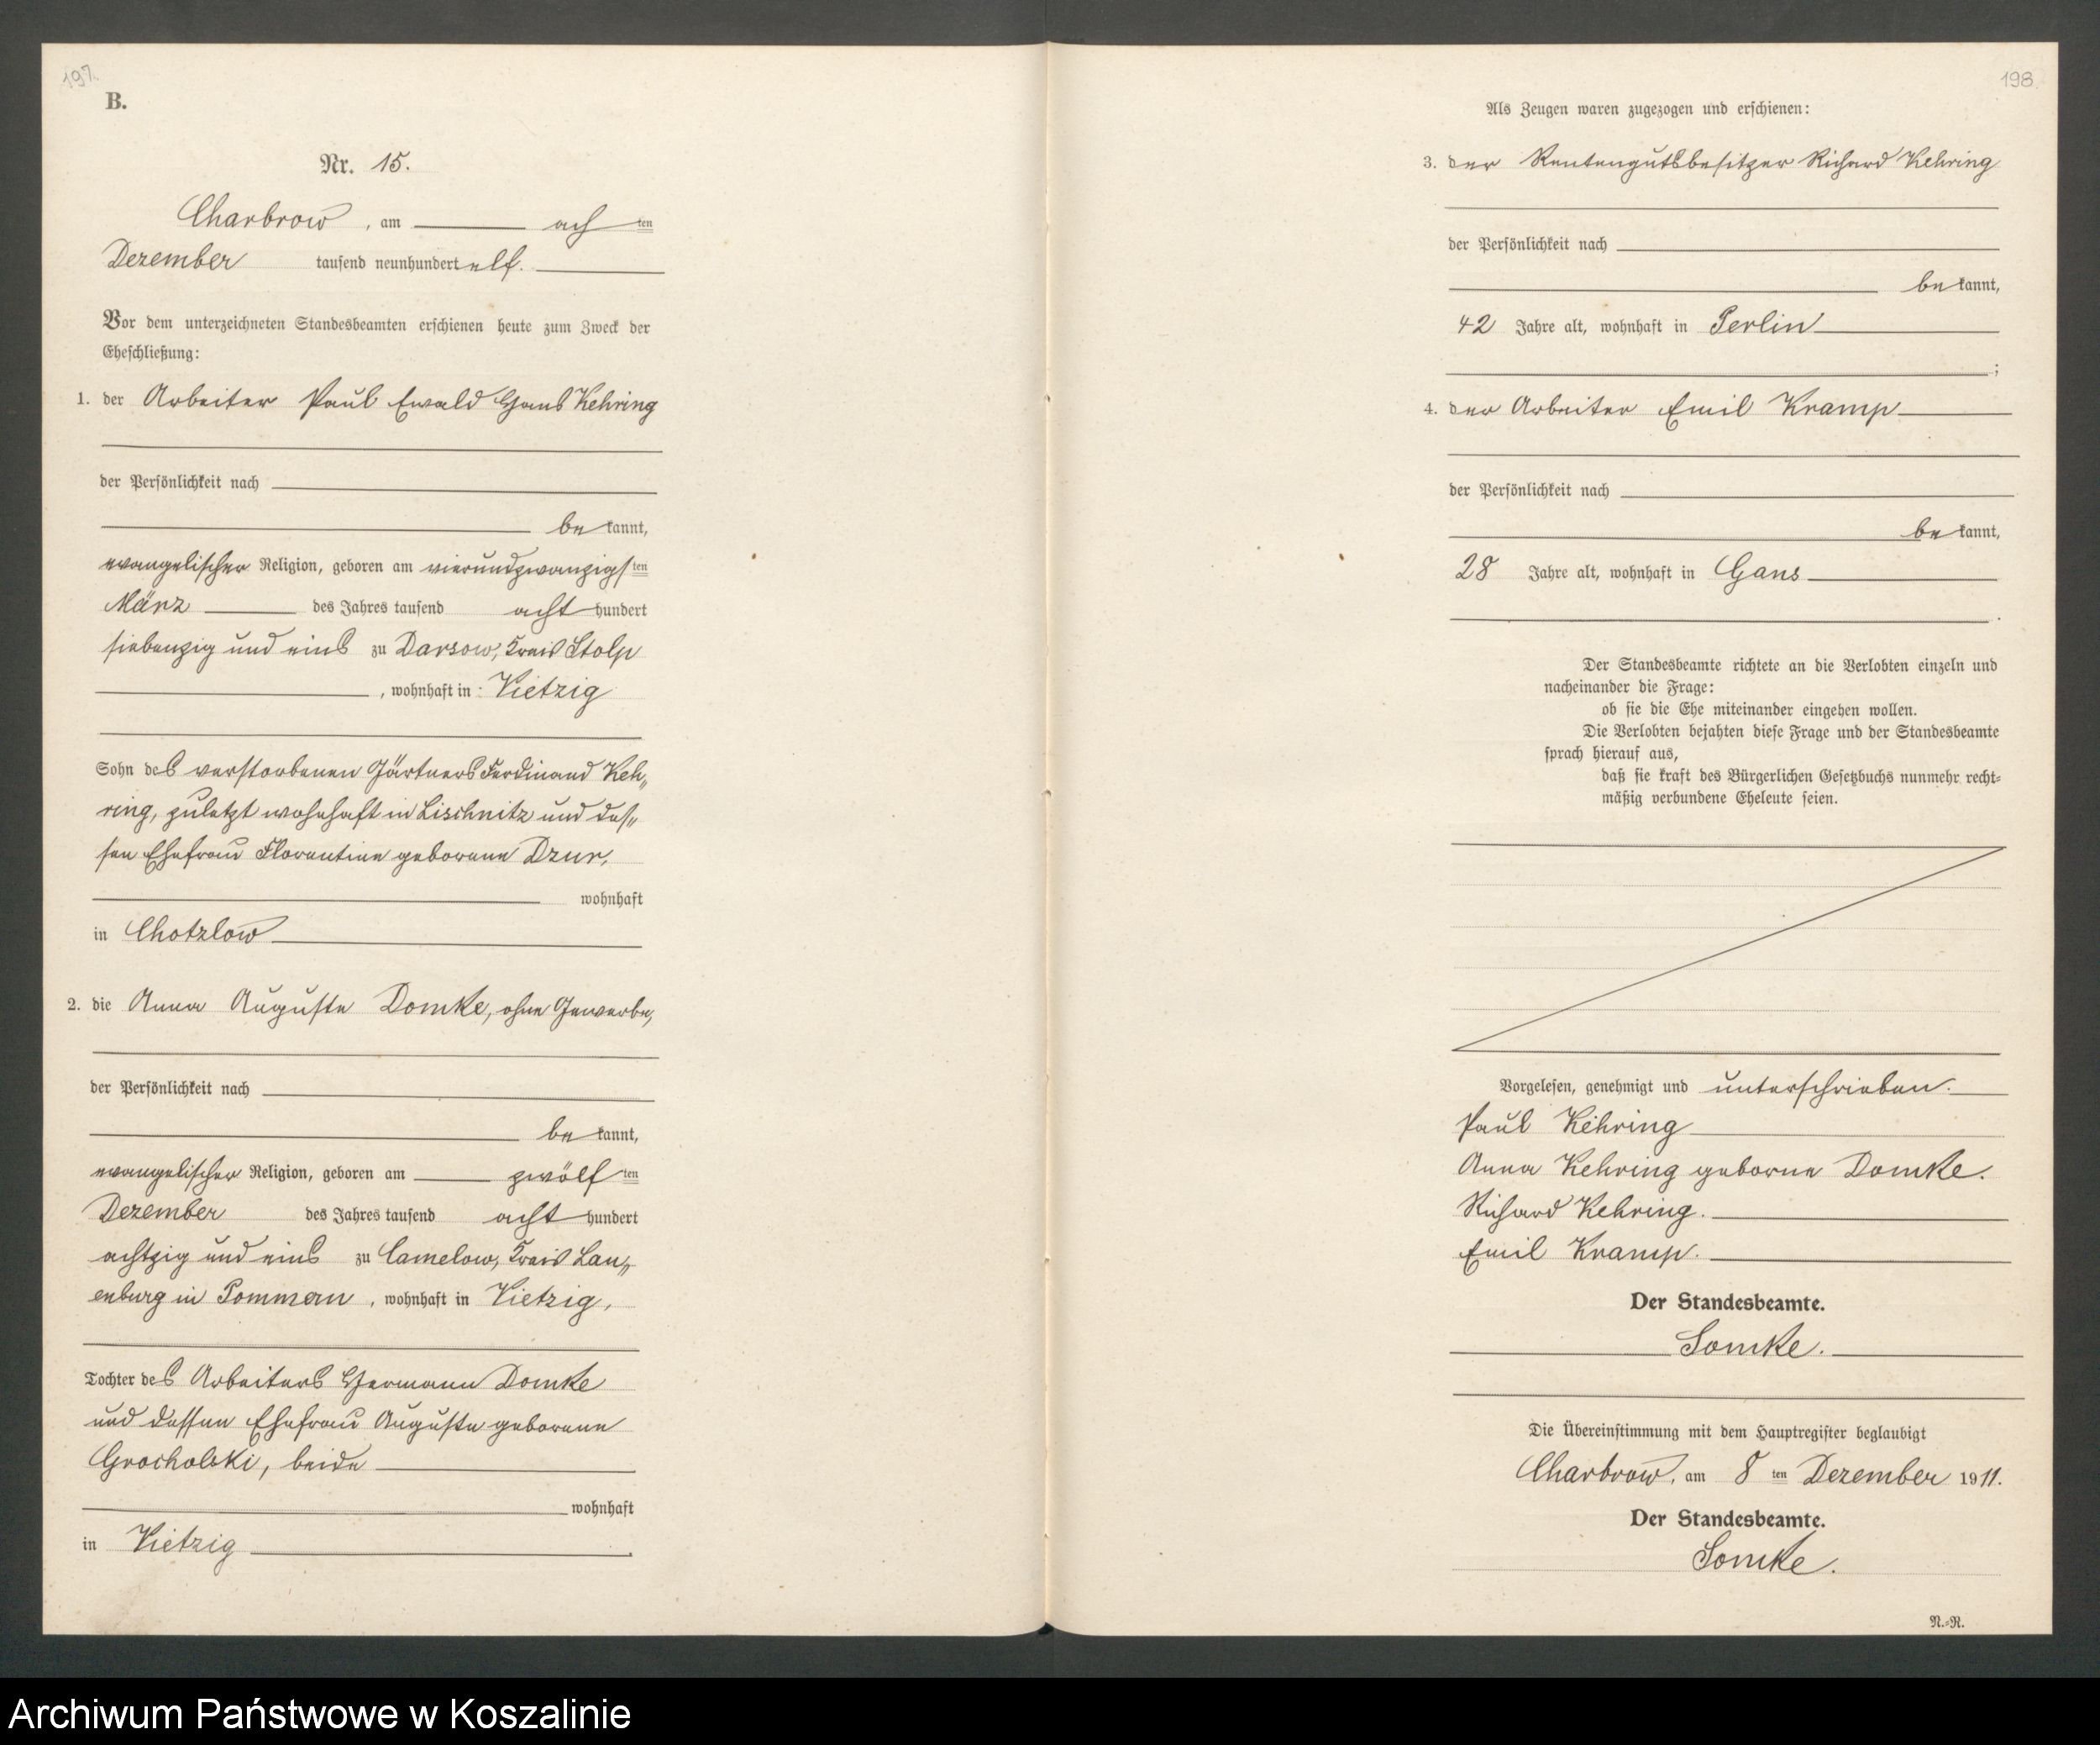 197.
B.
Nr. 15.
Charbrow, am ach ten
Dezember tausend neunhundert elf.
Vor dem unterzeichneten Standesbeamten erschienen heute zum Zweck der
Eheschließung:
1. der Arbeiter Paul Ewald Hans Kehring
der Persönlichkeit nach
be kannt,
evangelischer Religion, geboren am vierundzwanzigsten
März des Jahres tausend acht hundert
siebenzig und eins zu Darsow, Kreis Stolp
, wohnhaft in Vietzig
Sohn des verstorbenen Gärtners Ferdinand Keh„
ring, zuletzt wohnhaft in Lischnitz und des„
sen Ehefrau Florentine geborene Dzur,
wohnhaft
in Chotzlow
2. die Anna Auguste Domke, ohne Gewerbe,
der Persönlichkeit nach
be kannt,
evangelischer Religion, geboren am zwölf ten
Dezember des Jahres tausend acht hundert
achtzig und eins zu Camelow, Kreis Lau„
enburg in Pommern, wohnhaft in Vietzig,
Tochter des Arbeiters Hermann Domke
und dessen Ehefrau Auguste geborene
Grocholski, beide
wohnhaft
in Vietzig
198.
Als Zeugen waren zugezogen und erschienen:
3. der Rentengutsbesitzer Richard Kehring
der Persönlichkeit nach
be kannt,
42 Jahre alt, wohnhaft in Perlin
;
4. der Arbeiter Emil Kramp
der Persönlichkeit nach
be kannt,
28 Jahre alt, wohnhaft in Gans
.
Der Standesbeamte richtete an die Verlobten einzeln und
nacheinander die Frage:
ob sie die Ehe miteinander eingehen wollen.
Die Verlobten bejahten diese Frage und der Standesbeamte
sprach hierauf aus,
daß sie kraft des Bürgerlichen Gesetzbuchs nunmehr recht-
mäßig verbundene Eheleute seien.
Vorgelesen, genehmigt und unterschrieben.
Paul Kehring
Anna Kehring geborne Domke.
Richard Kehring.
Emil Kramp.
Der Standesbeamte.
Somke.
Die Übereinstimmung mit dem Hauptregister beglaubigt
Charbrow, am 8 ten Dezember 1911.
Der Standesbeamte.
Somke.
N.-R.
Archiwum Państwowe w Koszalinie